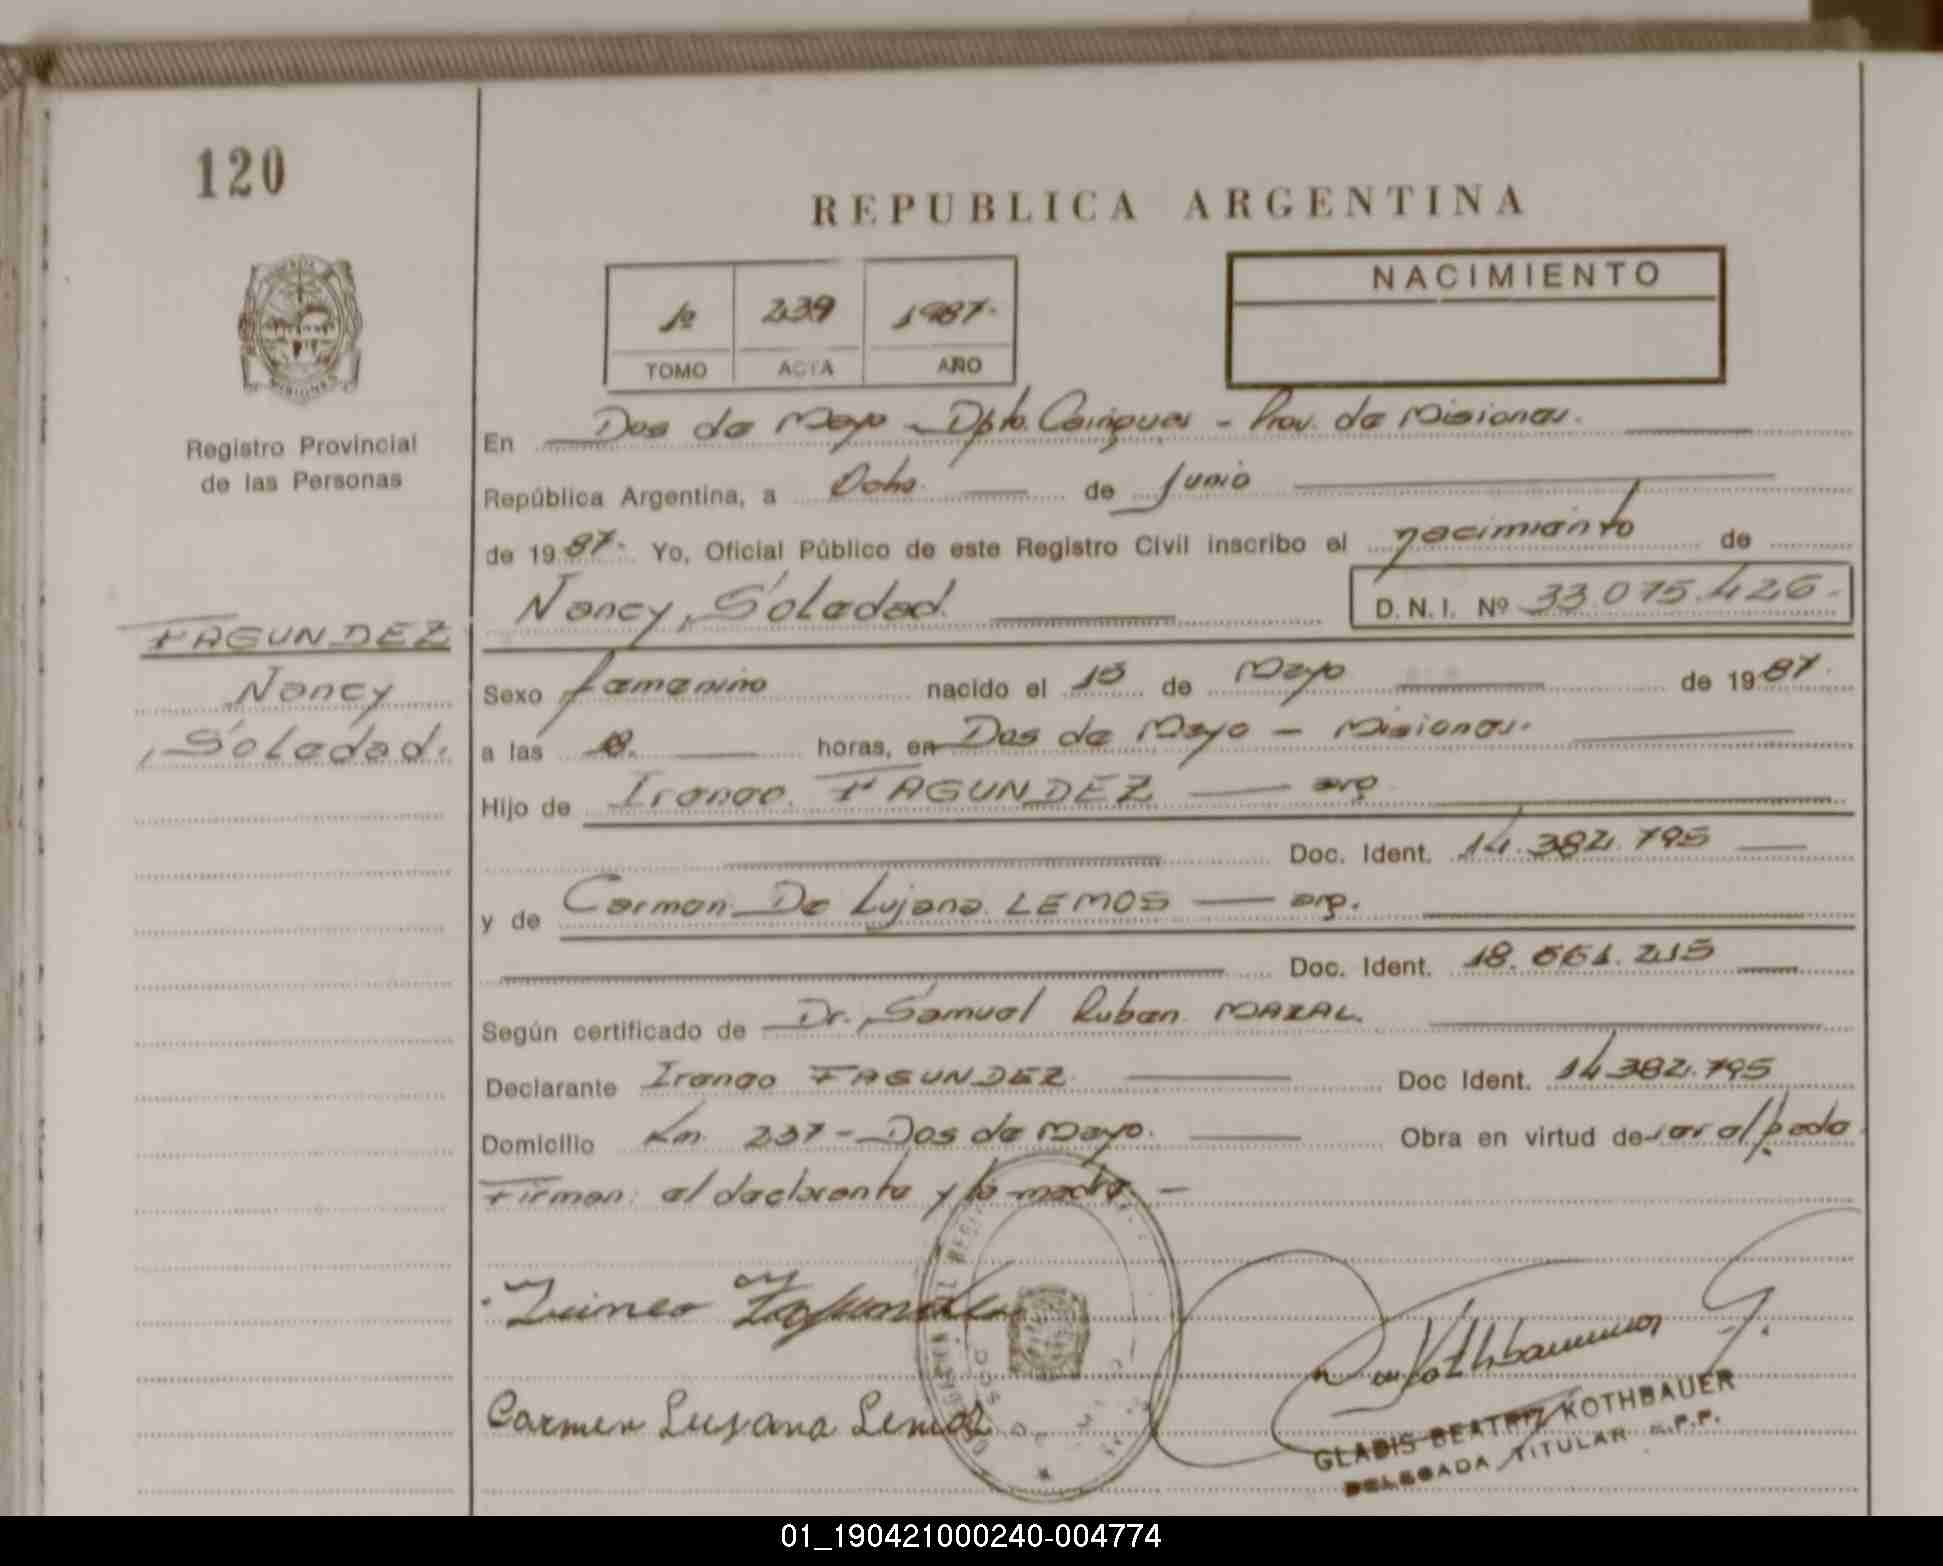 120
REPUBLICA ARGENTINA
NACIMIENTO
1º 239 1987.
TOMO ACTA AÑO
MISIONES
Registro Provincial
de las Personas
En Dos de Mayo - Dpto. Cainguas - Prov. de Misiones.
República Argentina, a Ocho. de Junio
de 1987. Yo, Oficial Público de este Registro Civil inscribo el nacimiento de
Nancy, Soledad. D.N.I. Nº 33.075.426.
FAGUNDEZ
Nancy
Soledad.
Sexo femenino nacido el de Mayo de 1987.
a las 8. horas, en Dos de Mayo - Misiones.
Hijo de Ireneo. FAGUNDEZ arg.
Doc. Ident. 14.382.795
y de Carmen De Lujana. LEMOS arg.
Doc. Ident. 18.661.215
Según certificado de Dr. Samuel Ruben. MAZAL.
Declarante Ireneo FAGUNDEZ Doc Ident. 14.382.795
Domicilio Km. 237 - Dos de Mayo. Obra en virtud de ser el padre.
Firman: el declarante y la madre. -
Carmen Lujana Lemos
Kothbauer G.
GLADIS BEATRIZ KOTHBAUER
DELEGADA TITULAR R.P.P.
01_190421000240-004774